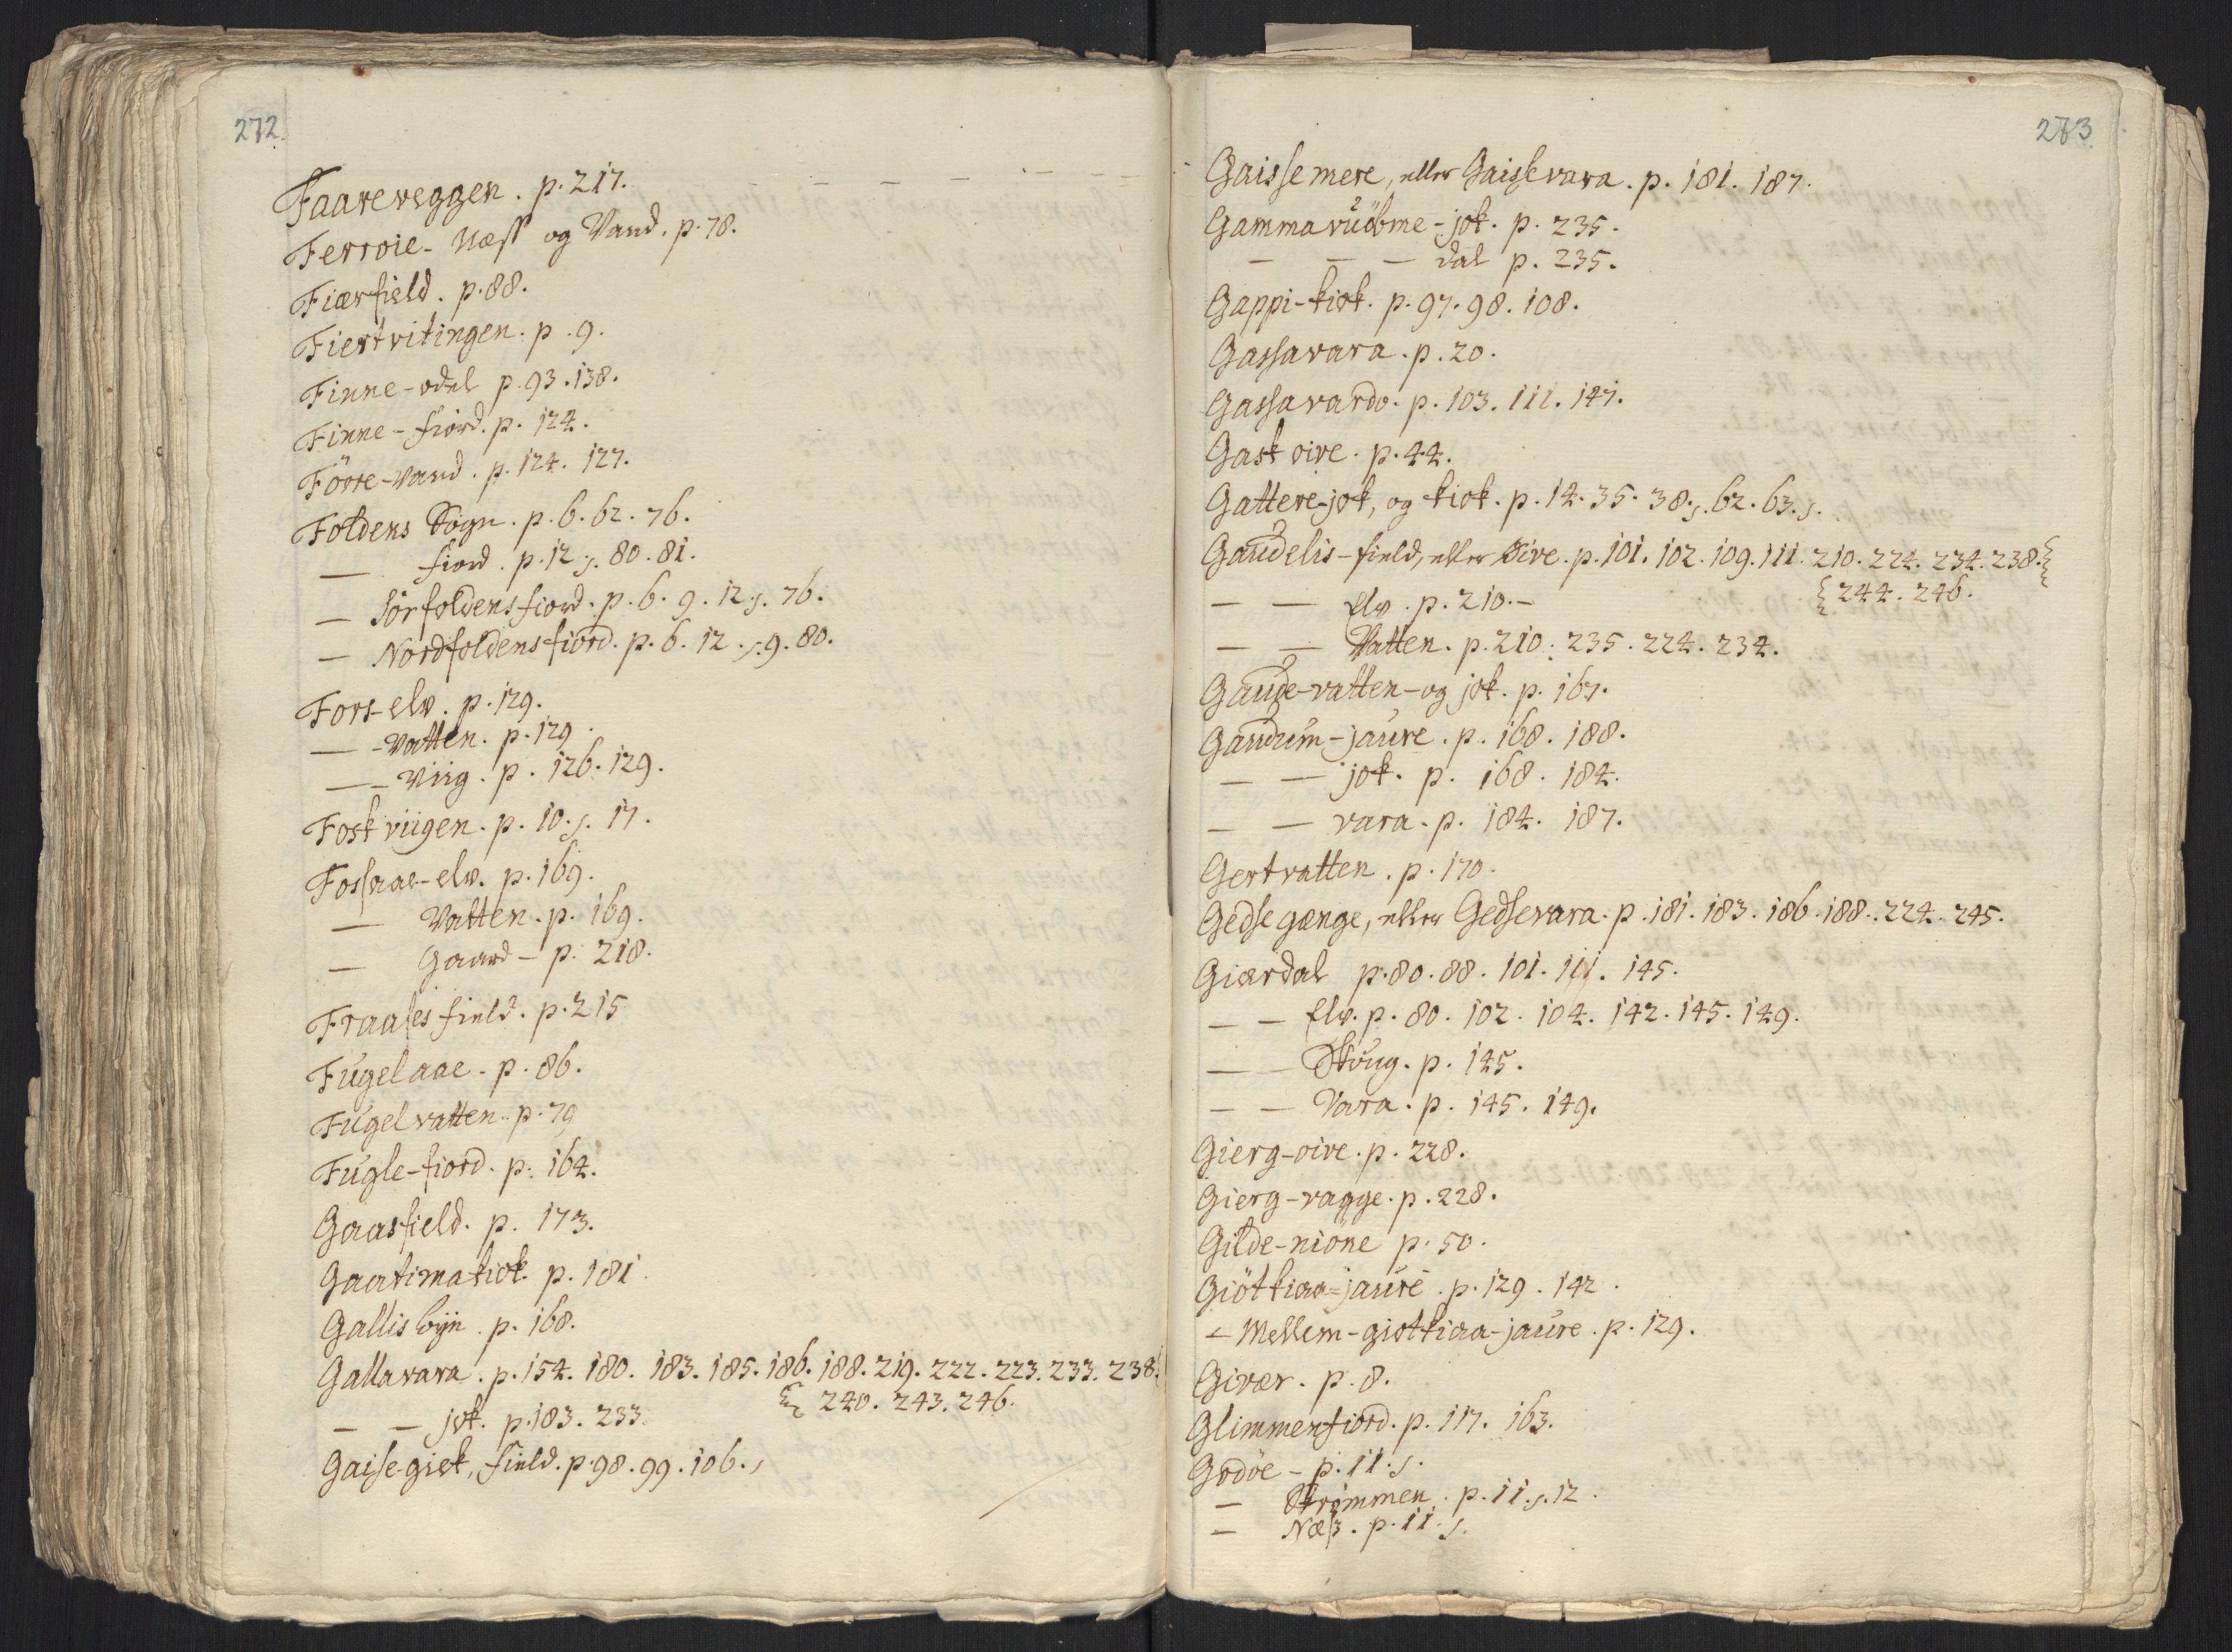 272.
Faareveggen. p. 217.
Ferroie-Næss og Vand. p. 78.
Fiærfield. p. 88.
Fiertvitingen. p. 9.
Finne-odel p. 93. 138.
Finne-fiord. p. 124.
Förre-Vand. p. 124. 127.
Foldens Sogn. p. 6. 62. 76.
— fiord. p. 12 s. 80. 81.
— Sörfoldensfiord. p. 6. 9. 12. s. 76.
— Nordfoldensfiord. p. 6. 12. s. 9. 80.
Fors-elv. p. 129.
— -Vatten. p. 129.
— -Viig. p. 126. 129.
Foskviigen. p. 10. s. 17.
Fossaae-elv. p. 169.
— Vatten. p. 169.
— Gaard - p. 218.
Fraasesfield. p. 215
Fugelaae. p. 86.
Fugelvatten. p. 79
Fugle-fiord. p. 164.
Gaasfield. p. 173.
Gaatimakiok p. 181.
Gallisbyn. p. 168.
Gallavara. p. 154. 180. 183. 185. 186. 188. 219. 222. 223. 233. 238.
240. 243. 246.
— — jok. p. 183. 233.
Gaise-giek, field. p. 98. 99. 106. s
273.
Gaissemere, eller Gaissevara. p. 181. 187.
Gammavuöbme-jok. p. 235.
— — — dal p. 235.
Gappi-kiok. p. 97. 98. 108.
Gassavara. p. 20.
Gassavardo. p. 103. 111. 147.
Gaskoive. p. 44.
Gatterejok, og kiok. p. 14. 35. 38. s. 62. 63. s.
Gaudelis-field, eller Oive. p. 101. 102. 109. 111. 210. 224. 234. 238.
244. 246.
— — Elv. p. 210. -
— — Vatten. p. 210. 235. 224. 234.
Gaude-vatten-og jok. p. 167.
Gaudum-jaure. p. 168. 188.
— — jok. p. 168. 184.
— — vara. p. 184. 187.
Gertvatten. p. 170.
Gedsegænge, eller Gedsevara. p. 181. 183. 186. 188. 224. 245.
Giærdal p. 80. 88. 101. 111. 145.
— — Elv. p. 80. 102. 104. 142. 145. 149.
— — Skoug. p. 145.
— — Vara. p. 145. 149.
Gierg-oive. p. 228.
Gierg-vagge. p. 228.
Gilde-nióne p. 50.
Giötkiaa-jaure. p. 129. 142.
- Mellem-giotkiaa-jaure. p. 129.
Givær. p. 8.
Glimmenfiord. p. 117. 163.
Godöe - p. 11. s.
— Strömmen. p. 11. s. 12.
— Næss. p. 11. s.